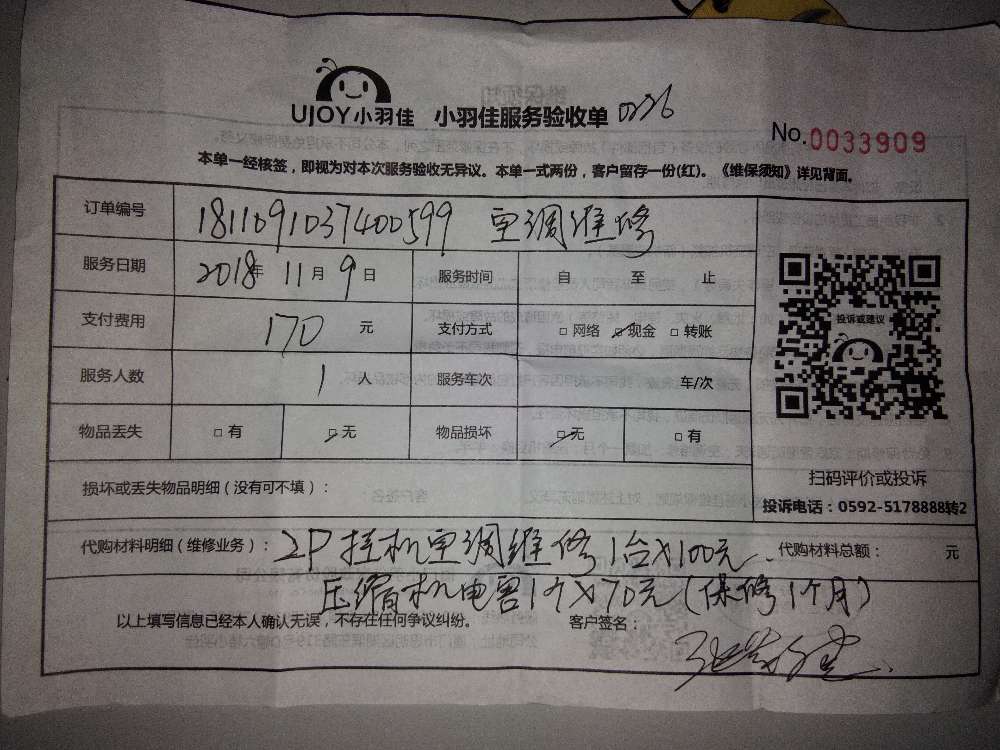 UJOY小羽佳 小羽佳服务验收单 0226
No.0033909
本单一经核签，即视为对本次服务验收无异议。本单一式两份，客户留存一份(红)。《维保须知》详见背面。
订单编号 181109103740​0599 空调维修
服务日期 2018年 11月 9日 服务时间 自 至 止
支付费用 170 元 支付方式 □网络 ☑现金 □转账
投诉或建议
服务人数 1 人 服务车次 车/次
物品丢失 □有 ☑无 物品损坏 ☑无 □有
损坏或丢失物品明细（没有可不填）：
扫码评价或投诉
投诉电话：0592-5178888转2
代购材料明细（维修业务）：2P挂机空调维修1台X100元 代购材料总额： 元
压缩机电容1个X70元(保修1个月)
以上填写信息已经本人确认无误，不存在任何争议纠纷。 客户签名：